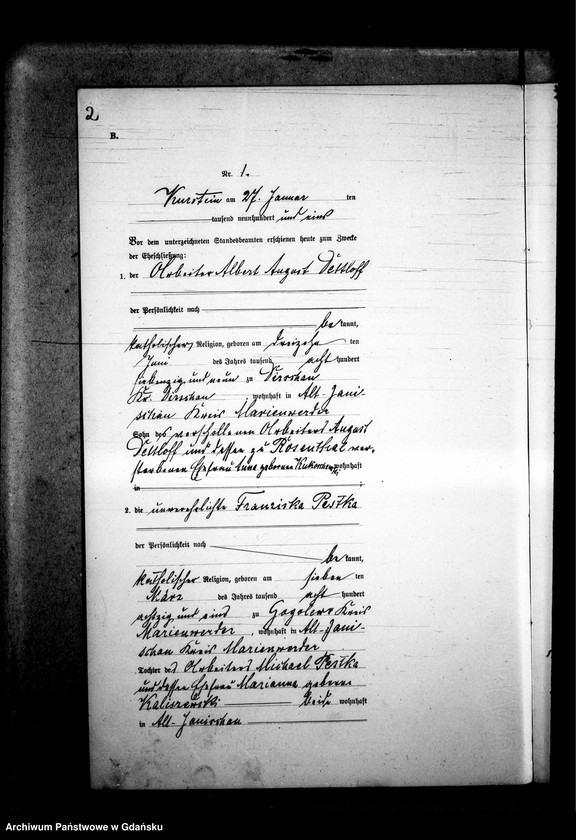 2
B.
Nr. 1.
Kurstein am 27. Januar ten
tausend neunhundert und eins
Vor dem unterzeichneten Standesbeamten erschienen heute zum Zwecke
der Eheschließung:
1. der Arbeiter Albert August Dettloff
der Persönlichkeit nach
be kannt,
katholischer Religion, geboren am dreizehn ten
Juni des Jahres tausend acht hundert
siebenzig und neun zu Dirschau
Kr. Dirschau wohnhaft in Alt-Jani-
schau Kreis Marienwerder
Sohn des verschollenen Arbeiters August
Dettloff und dessen zu Rosenthal ver-
storbenen Ehefrau geborenen wohnhaft
in
2. die unverehelichte Franziska Pestka
der Persönlichkeit nach
be kannt,
katholischer Religion, geboren am sieben ten
März des Jahres tausend acht hundert
achtzig und eins zu Gogolewo Kreis
Marienwerder, wohnhaft in Alt-Jani-
schau Kreis Marienwerder
Tochter des Arbeiters Michael Pestka
und dessen Ehefrau Marianna geborene
Kaliszewski Beide wohnhaft
in Alt-Janischau
Archiwum Państwowe w Gdańsku